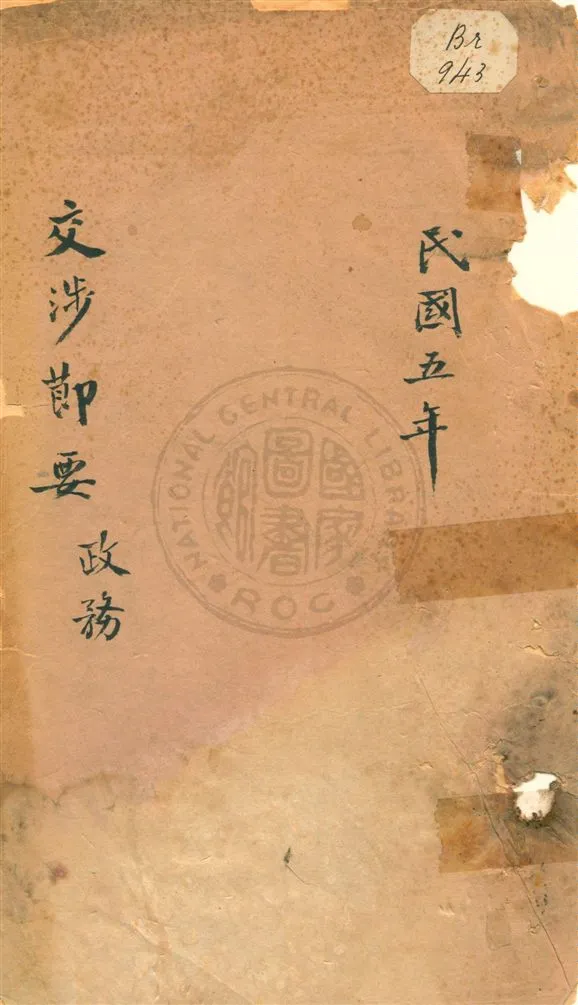 Br
943
民國五年
交涉節要 政務
NATIONAL CENTRAL LIBRARY
國家圖書館
ROC